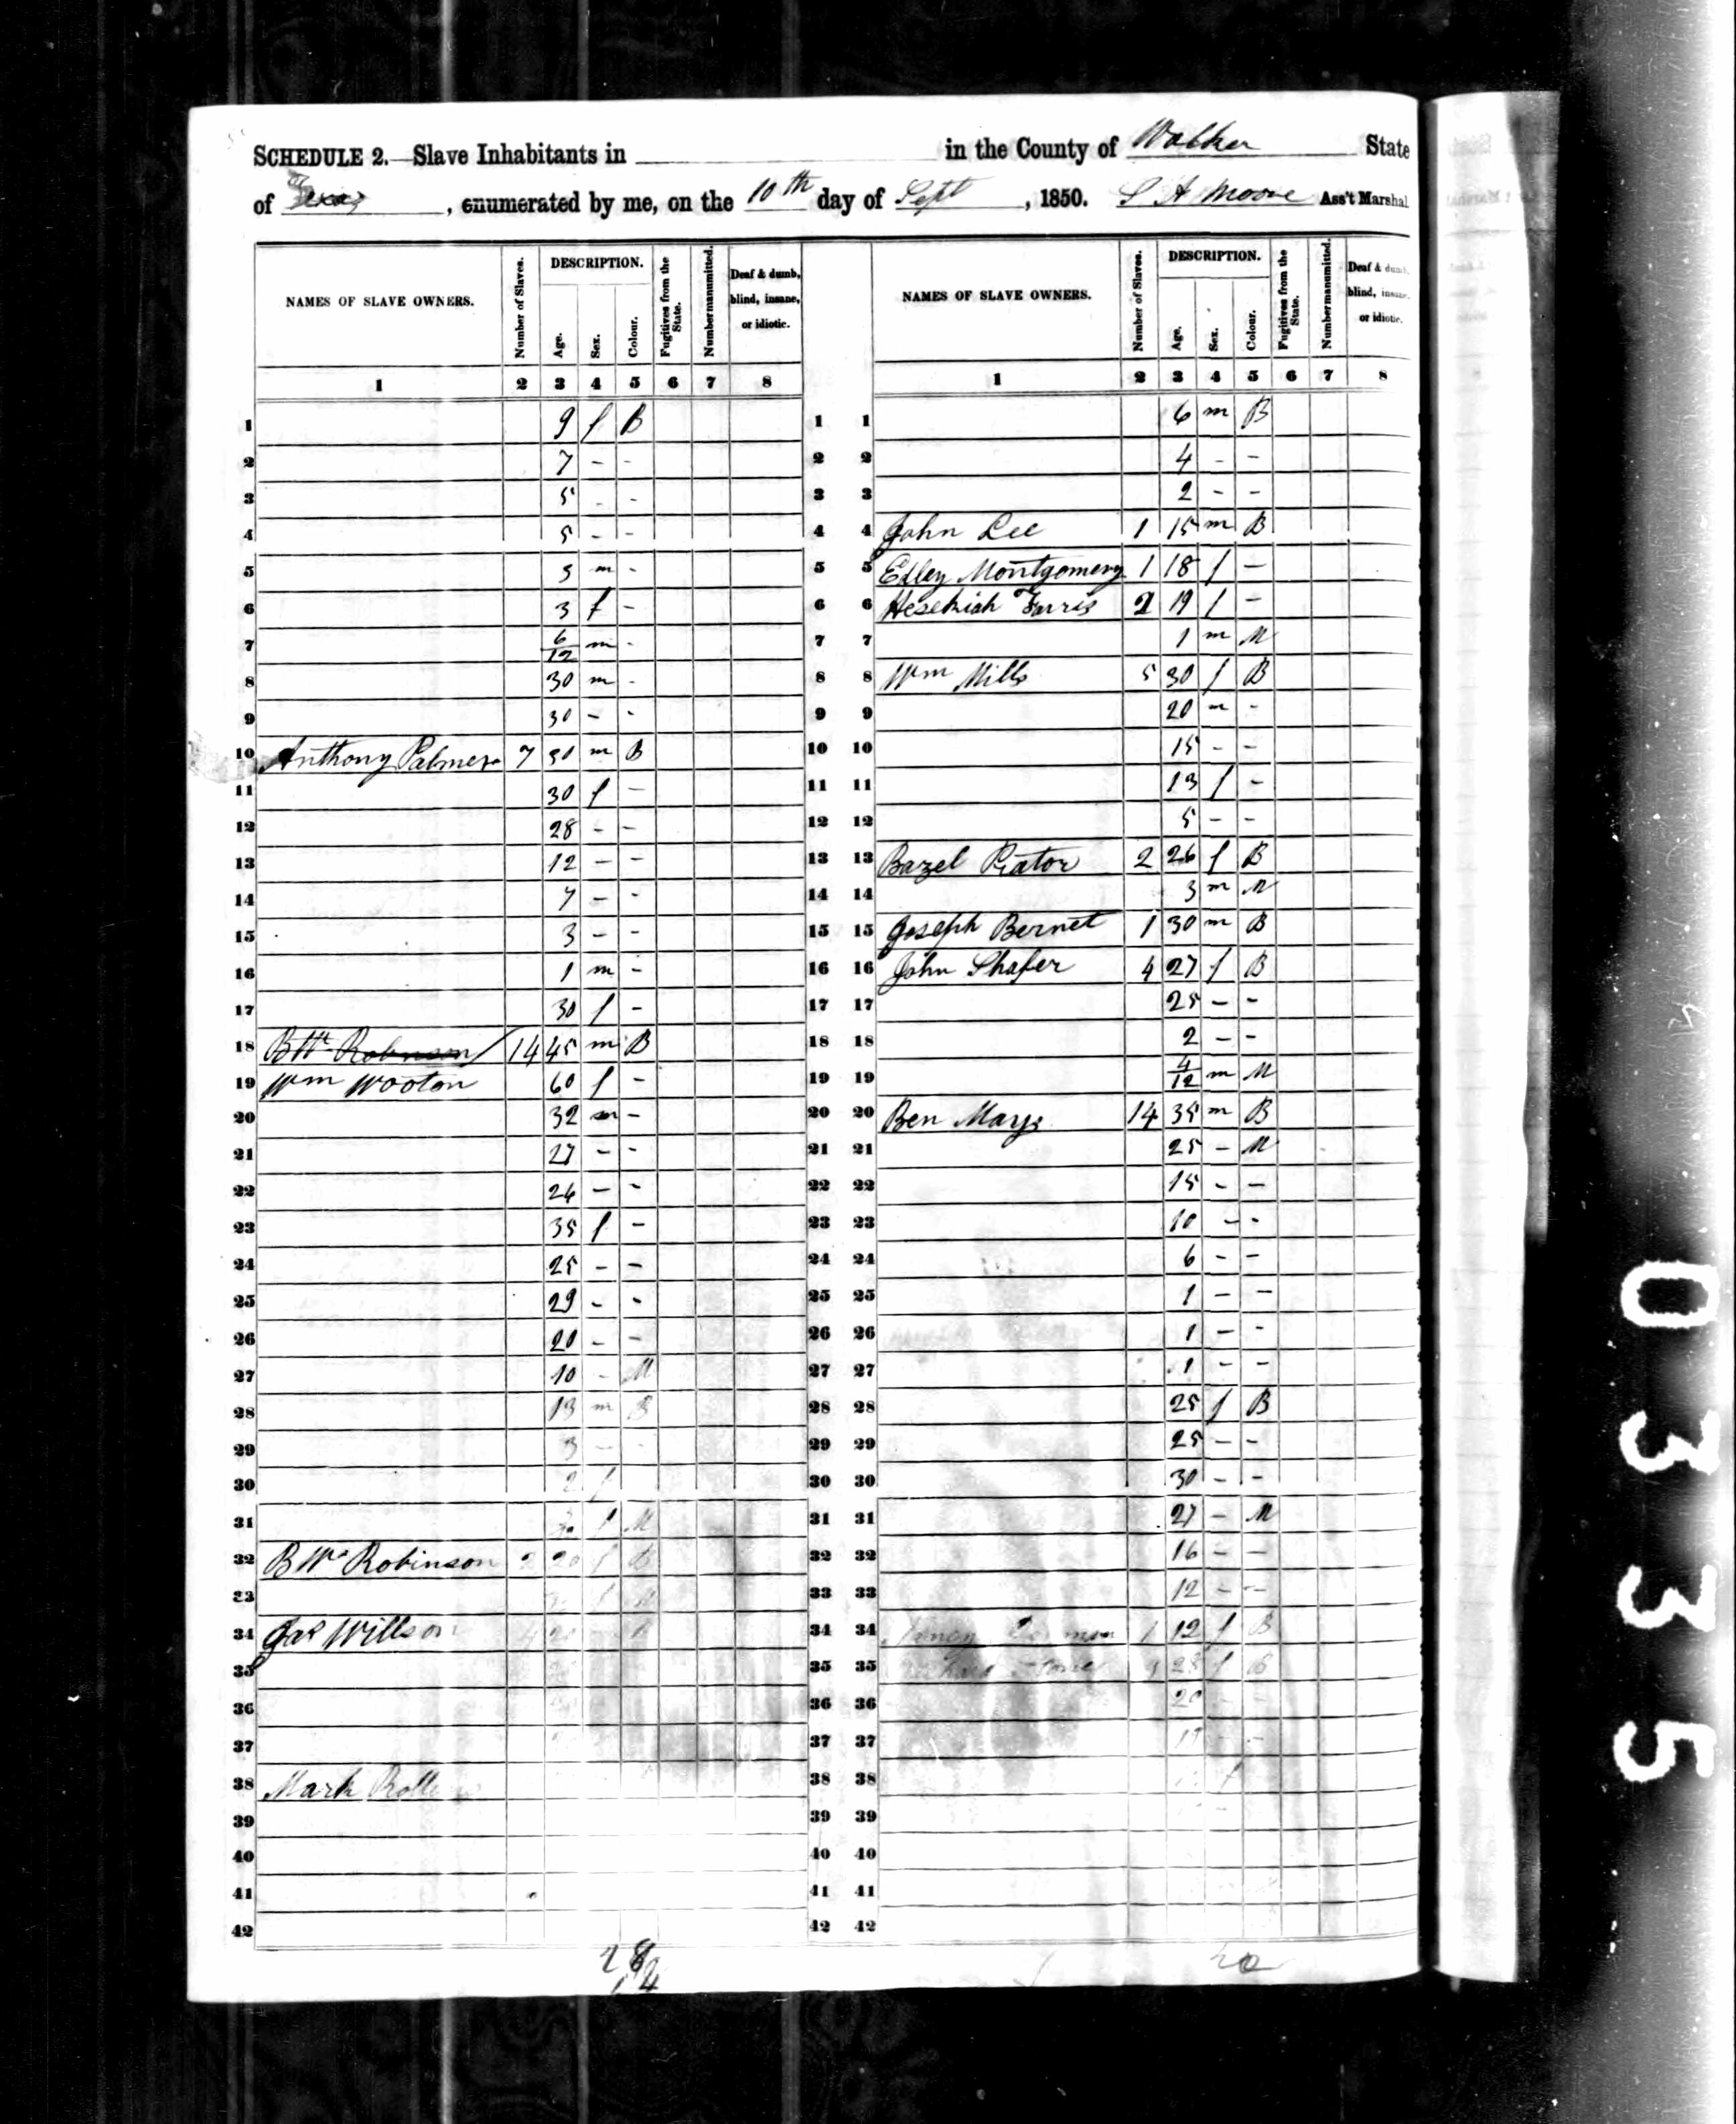 SCHEDULE 2.—Slave Inhabitants in in the County of Walker State
of Texas, enumerated by me, on the 10th day of Sept, 1850. S A Moore Ass't Marshal
NAMES OF SLAVE OWNERS. Number of Slaves. DESCRIPTION. Age. Sex. Colour. Fugitives from the State. Number manumitted. Deaf & dumb, blind, insane, or idiotic.
1 2 3 4 5 6 7 8
1 9 f B 1
2 7 - - 2
3 5 - - 3
4 5 - - 4
5 3 m - 5
6 3 f - 6
7 6/12 m - 7
8 30 m - 8
9 30 - - 9
10 Anthony Palmer 7 30 m B 10
11 30 f - 11
12 28 - - 12
13 12 - - 13
14 7 - - 14
15 3 - - 15
16 1 m - 16
17 30 f - 17
18 B Wr Robinson 14 45 m B 18
19 Wm Wooton 60 f - 19
20 32 m - 20
21 27 - - 21
22 26 - - 22
23 35 f - 23
24 25 - - 24
25 29 - - 25
26 20 - - 26
27 10 - M 27
28 13 m B 28
29 3 - - 29
30 2 f 30
31 f M 31
32 B Wr Robinson 2 20 f B 32
33 33
34 Jas Willson 4 34
35 35
36 36
37 37
38 Mark 38
39 39
40 40
41 41
42 42
NAMES OF SLAVE OWNERS. Number of Slaves. DESCRIPTION. Age. Sex. Colour. Fugitives from the State. Number manumitted. Deaf & dumb, blind, insane, or idiotic.
1 2 3 4 5 6 7 8
1 6 m B
2 4 - -
3 2 - -
4 John Lee 1 15 m B
5 Edley Montgomery 1 18 f -
6 Hesekiah Farris 2 19 f -
7 1 m M
8 Wm Mills 5 30 f B
9 20 m -
10 15 - -
11 13 f -
12 5 - -
13 Bazel 2 26 f B
14 3 m M
15 Joseph Bernet 1 30 m B
16 John Shafer 4 27 f B
17 25 - -
18 2 - -
19 4/12 m M
20 Ben Mays 14 35 m B
21 25 - M
22 15 - -
23 10 - -
24 6 - -
25 1 - -
26 1 - -
27 1 - -
28 25 f B
29 25 - -
30 30 - -
31 27 - M
32 16 - -
33 12 - -
34 Nancy 1 12 f B
35 28 f B
36 20 - -
37
38
39
40
41
42
0335